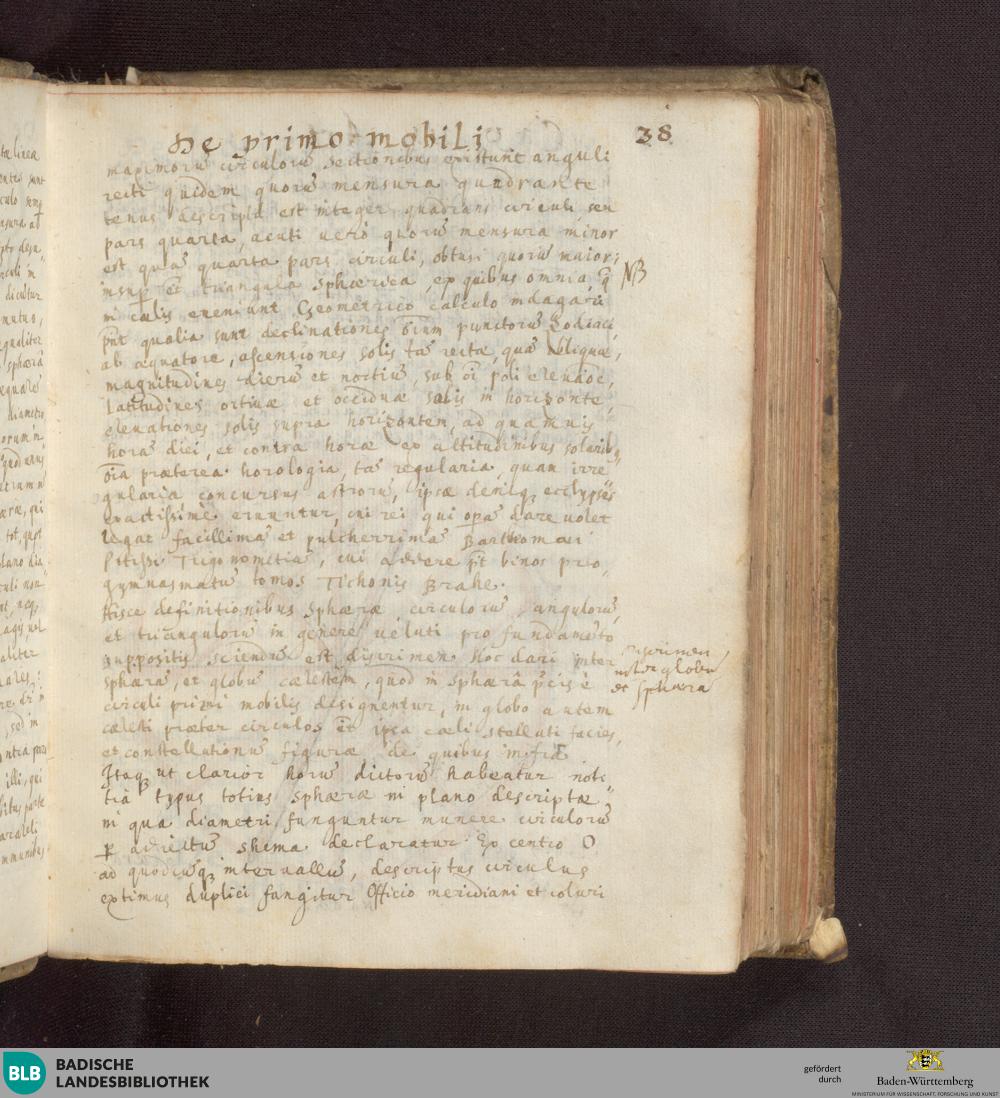 De primo mobili 38
maximorū circulorū sectionibus existunt anguli
recti quidem quorū mensura quadrante
tenus descripta est integer quadrans circuli seu
pars quarta, acuti uero quorū mensura minor
est quā quarta pars circuli, obtusi quorū maior;
insup et triangula sphærica, ex quibus omnia, q̄
NB
in cælis eueniunt Geometrico calculo indagari
pñt qualia sunt declinationes oīum punctorū Zodiaci
ab æquatore, ascensiones solis tā recta, quā obliqua,
magnitudines dierū et noctiū, sub oī poli eleuāõe,
Latitudines ortiuæ et occiduæ solis in horizonte,
eleuationes solis supra horizontem, ad quamuis
horā diei, et contra horæ ex altitudinibus solarib9,
oīa præterea horologia, tā regularia, quam irre
gularia concursus astrorū, ipsæ deniq3 ecclypses
exactissime eruuntur, cui rei qui operā dare uolet
legat facillimā et pulcherrimā Bartholomæi
Pitissi Trigonometriā, cui addere pt binos pro,
gymnasmatū tomos Tichonis Brahe.
Hisce definitionibus sphæræ circulorū, angulorū,
et triangulorū in genere ueluti pro fundamēto
suppositis sciendū est discrimen hoc dari inter
discrimen
inter globū
et sphæra
sphærā, et globū cælestem, quod in sphærâ
circuli primi mobilis designentur, in globo autem
cælesti præter circulos et ipsa cæli stellati facies,
et constellationū figuræ de quibus infrâ
Itaq3 ut clarior horū dictorū habeatur noti
tiā typus totius sphæræ in plano descriptæ
in qua diametri funguntur munere circulorū
p adiectū shima declaratur Ex centro O
ad quodcūq3 interuallū, descriptus circulus
extimus duplici fungitur Officio meridiani et coluri
BLB BADISCHE
LANDESBIBLIOTHEK
gefördert
durch
Baden-Württemberg
MINISTERIUM FÜR WISSENSCHAFT, FORSCHUNG UND KUNST